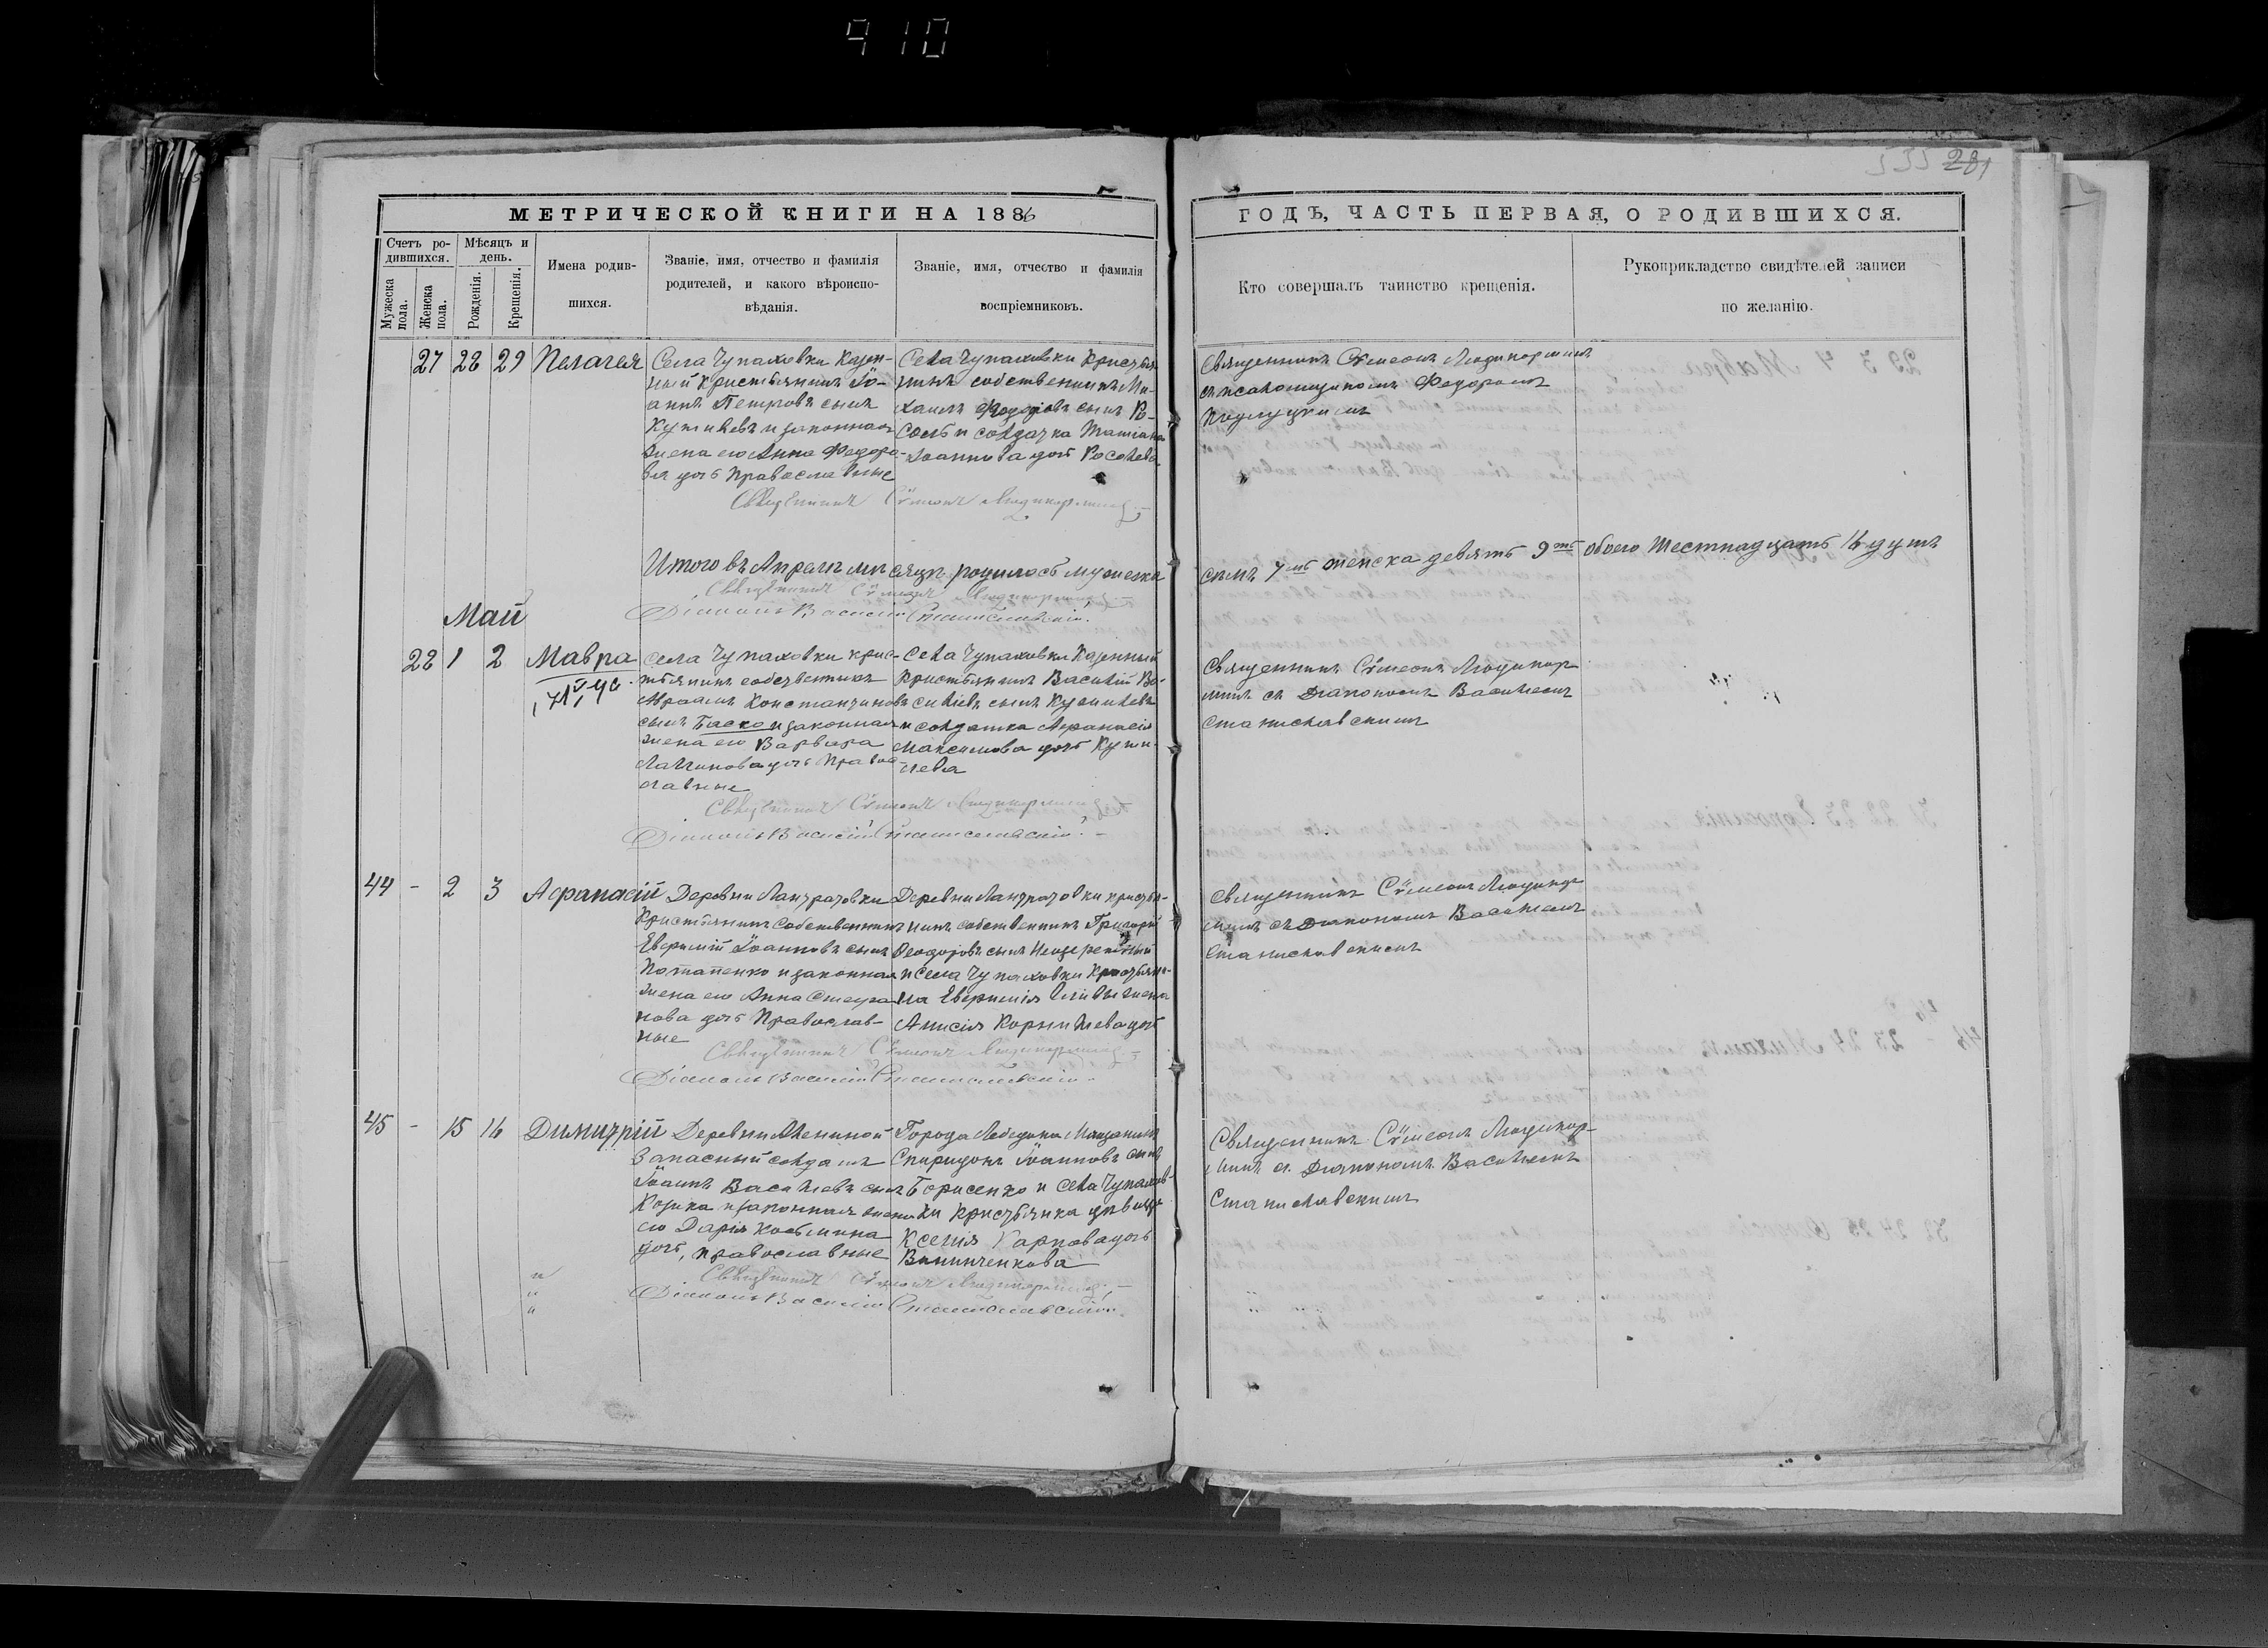 910
533 281
МЕТРИЧЕСКОЙ КНИГИ НА 1886
ГОДЪ, ЧАСТЬ ПЕРВАЯ, О РОДИВШИХСЯ.
Счетъ ро-
дившихся.
Мѣсяцъ и
день.
Мужеска
пола.
Женска
пола.
Рожденія.
Крещенія.
Имена родив-
шихся.
Званіе, имя, отчество и фамилія
родителей, и какого вѣроиспо-
вѣданія.
Званіе, имя, отчество и фамилія
воспріемниковъ.
Кто совершалъ таинство крещенія.
Рукоприкладство свидѣтелей записи
по желанію.
27 28 29 Пелагея
Села Чупаховки Казен-
ный крестьянинъ Іо-
аннъ Петровъ сынъ
и законная
жена его Анна Федоро-
ва дочь Православные
Села Чупаховки Крестья
нинъ собственникъ Ми-
хаилъ Федоровъ сынъ Ро-
соль и солдатка Татіана
Іоаннова дочь Росолева
Священникъ Сѵмеонъ
съ псаломщикомъ Федоромъ
Священникъ Сѵмеонъ
Итого въ Апрелѣ мѣсяцѣ родилось мужеска
семь 7мь женска девять 9ть обоего шестнадцать 16 душъ
Священникъ Сѵмеонъ
Діаконъ Василій Станиславскій.
Май
28 1 2 Мавра
Села Чупаховки крес-
тьянинъ собственникъ
Авраамъ Константиновъ
сынъ Баско и законная
жена его Варвара
дочь Правос-
лавные
Села Чупаховки Казенный
Крестьянинъ Василій Ва-
силіевъ сынъ
и солдатка Афанасія
Максимова дочь
лева
Священникъ Сѵмеонъ
съ Діакономъ Василіемъ
Станиславскимъ
Священникъ Сѵмеонъ
Діаконъ Василій Станиславскій.
44 - 2 3 Афанасій
Деревни
Крестьянинъ Собственникъ
Евфимій Іоанновъ сынъ
Потапенко и законная
жена его Анна Стефа
нова дочь Православ-
ные
Деревни крестья-
нинъ собственникъ Григорій
Феодоровъ сынъ
и Села Чупаховки Крестьян-
ка Евфимія жена
Анисія Корниліева дочь
Священникъ Сѵмеонъ
съ Діакономъ Василіемъ
Станиславскимъ
Священникъ Сѵмеонъ
Діаконъ Василій Станиславскій.
45 - 15 16 Димитрій
Деревни
Запасный солдатъ
Іоаннъ Василіевъ сынъ
и законная жена
его Дарія Косьмина
дочь, православные
Города Лебедина Мещанинъ
Спиридонъ Іоанновъ сынъ
Борисенко и Села Чупахов-
ки Крестьянка дѣвица
Ксенія Карпова дочь
Винниченкова
Священникъ Сѵмеонъ
съ Діакономъ Василіемъ
Станиславскимъ
Священникъ Сѵмеонъ
Діаконъ Василій Станиславскій.